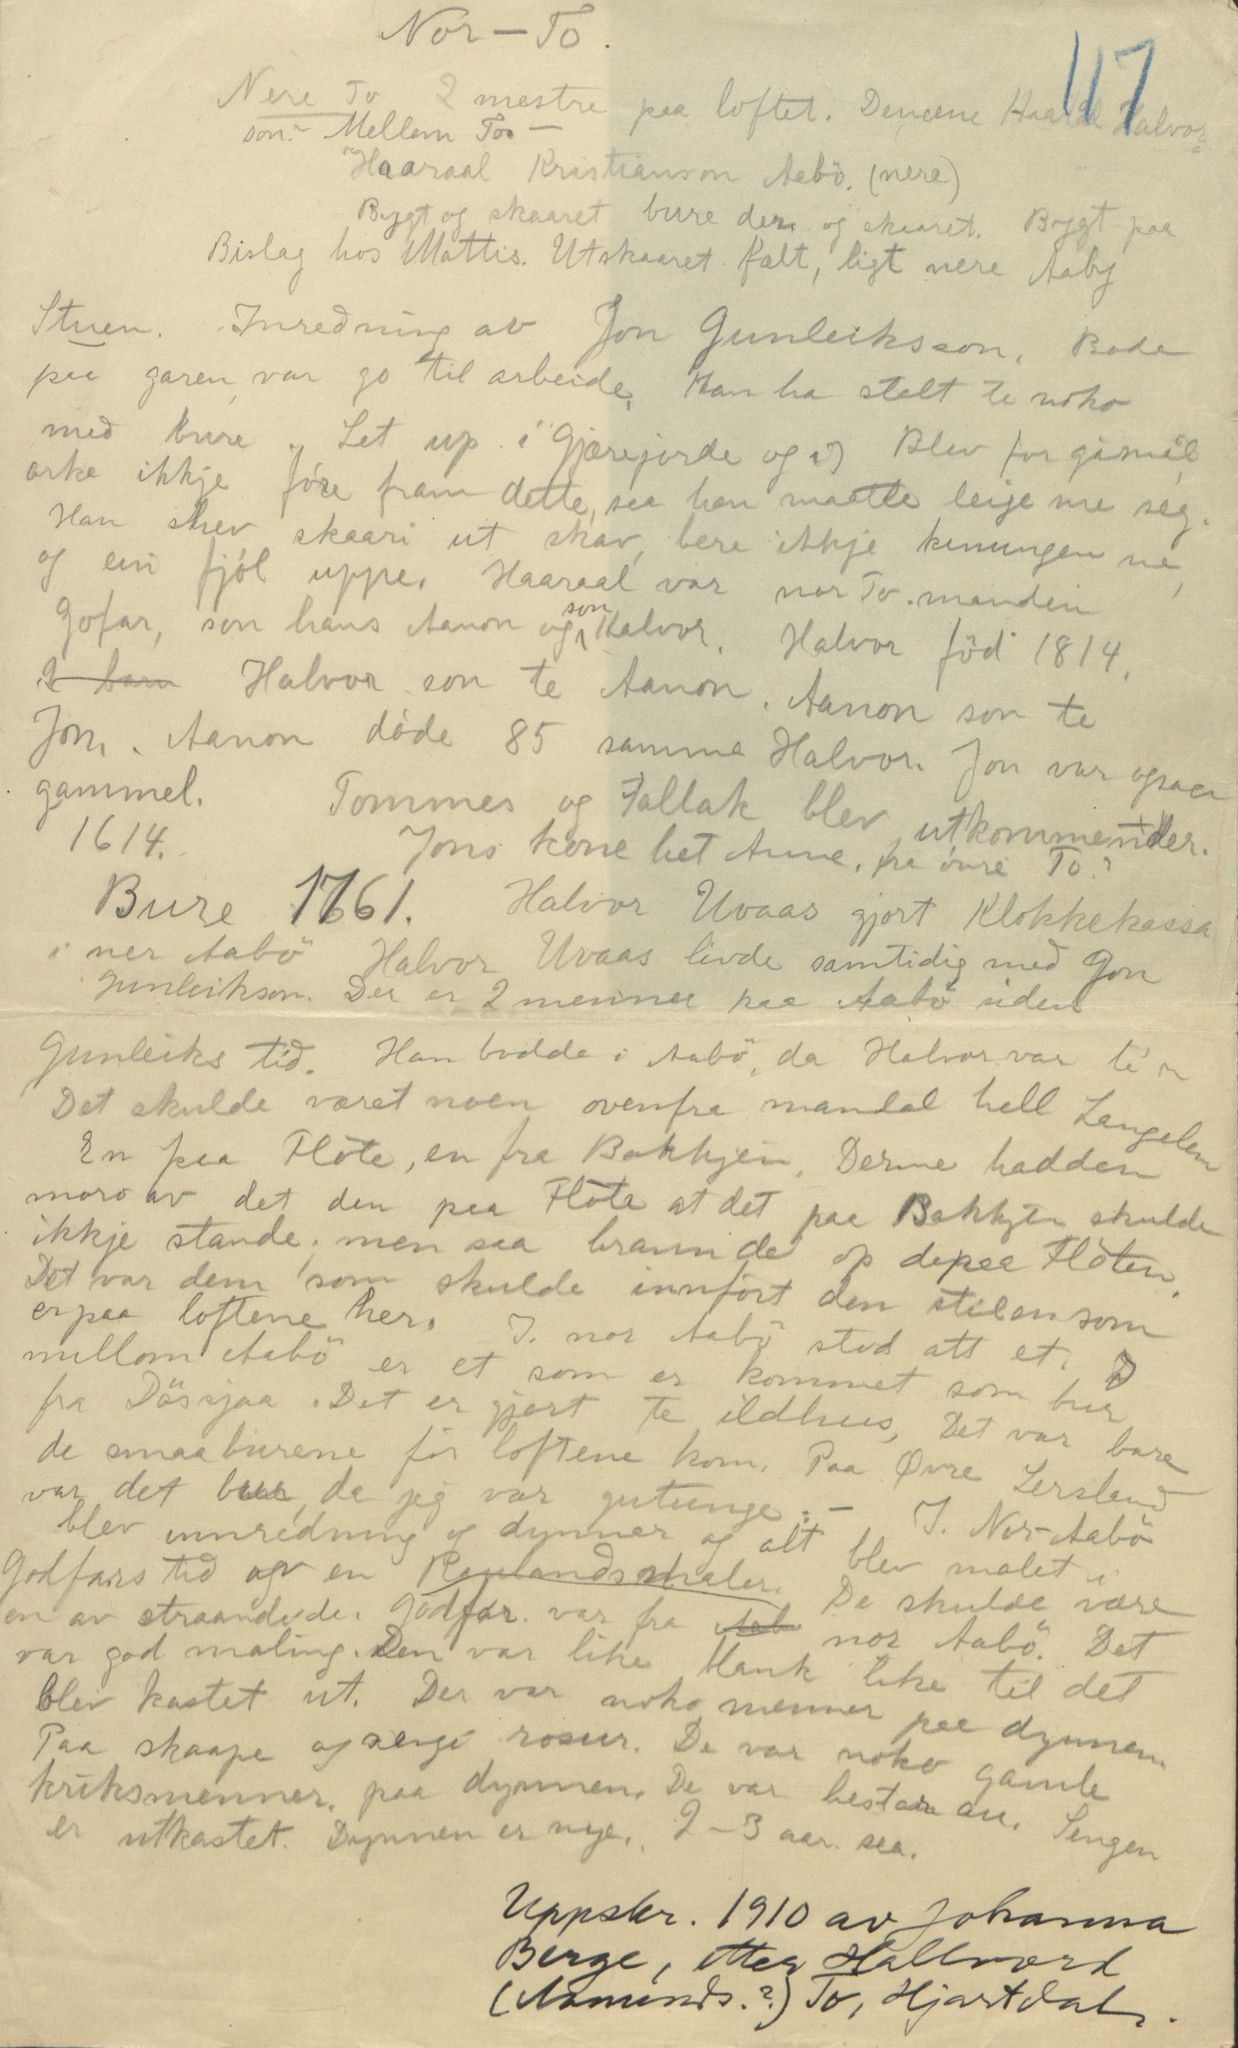 Nor-To.
117
Nere To 2 mestre paa loftet. Denene Haaral Halvor-
son - Mellem To -
Haaraal Kristianson Aabö. (nere)
Bygt og skaaret bure der og skaaret. Bygt paa
Bislag hos Mattis. Utskaaret falt, ligt nere Aaby
Stuen. Inredning av Jon Gunleiksson. Bode
paa garen, var go til arbeide. Han ha stelt te noko
med bure. Let up i Gjærejorde og Blev for gåmål
orke ikkje före fram dette, saa han maatte leije me seg.
Han skrev skaari ut skav, bere ikkje kunungen ne,
og ein fjöl uppe. Haaraal var nor To. manden
Gofar, son hans Aanon og son Halvor. Halvor föd 1814.
2 barn Halvor son te Aanon. Aanon son te
Jon. Aanon döde 85 samme Halvor. Jon var ogsaa
gammel. Tommes og Tallak blev utkommenter.
1614. Jons kone het Anne, fra övre To?
Bure 1761. Halvor Uvaas gjort Klokkekassa
i ner Aabö Halvor Uvaas livde samtidig med Jon
Gunleikson. Der er 2 menner paa Aabö siden
Gunleiks tid. Han bodde i Aabö, da Halvor var te'n
Det skulde været noen ovenfra mandal hell Langelem
En paa Flöte, en fra Bakkjen. Derme hadden
moro av det den paa Flöte at det paa Bakkjen skulde
ikkje stande, men saa brann de op depaa Flöten.
Det var dem som skulde innfört den stilen som
er paa loftene her. I. nor Aabö stod att et. D
mellom Aabö er et som er kommet som bur
fra Dösjaa. Det er gjort te ildhus, Det var bare
de smaaburene för loftene kom. Paa Øvre Lersland
var det bur, da jeg var gutunge. - I. Nor-Aabö
blev innredning og dynner og alt blev malet i
Godfars tid av en Raulandsmaler. De skulde være
en av straandede. Godfar var fra Aab nor Aabö. Det
var god maling. Den var like blank like til det
blev kastet ut. Der var noko menner paa dynnen.
Paa skaape og sengi rosur. De var noko gamle
kriksmenner. paa dynnen. De var hestar au. Sengen
er utkastet. Dynnen er nye. 2-3 aar. sea.
Uppskr. 1910 av Johanna
Berge, etter Hallvord
(Aamunds.?) To, Hjartdal.